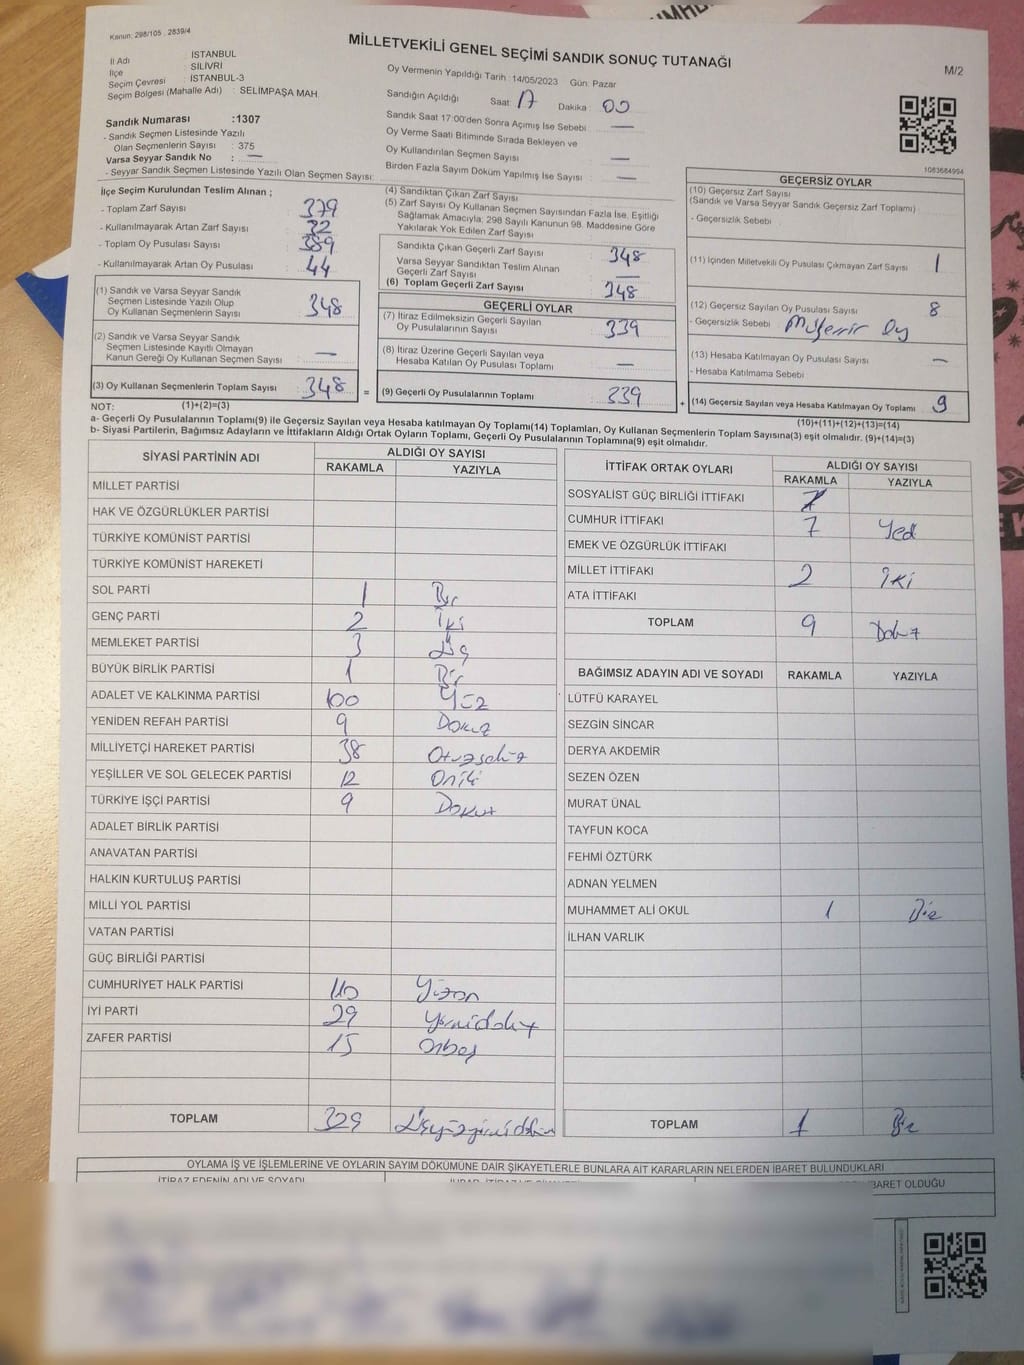 Kanun: 298/105 , 2839/4
MİLLETVEKİLİ GENEL SEÇİMİ SANDIK SONUÇ TUTANAĞI
M/2
İl Adı : İSTANBUL
İlçe : SİLİVRİ
Seçim Çevresi : İSTANBUL-3
Seçim Bölgesi (Mahalle Adı) : SELİMPAŞA MAH.
Sandık Numarası :1307
- Sandık Seçmen Listesinde Yazılı
Olan Seçmenlerin Sayısı : 375
Varsa Seyyar Sandık No : —
- Seyyar Sandık Seçmen Listesinde Yazılı Olan Seçmen Sayısı:
Oy Vermenin Yapıldığı Tarih :14/05/2023 Gün: Pazar
Sandığın Açıldığı Saat 17 Dakika 00
Sandık Saat 17:00'den Sonra Açımış İse Sebebi : —
Oy Verme Saati Bitiminde Sırada Bekleyen ve
Oy Kullandırılan Seçmen Sayısı : —
Birden Fazla Sayım Döküm Yapılmış İse Sayısı : —
1083684954
İlçe Seçim Kurulundan Teslim Alınan ;
- Toplam Zarf Sayısı : 379
- Kullanılmayarak Artan Zarf Sayısı : 32
- Toplam Oy Pusulası Sayısı : 389
- Kullanılmayarak Artan Oy Pusulası : 44
(1) Sandık ve Varsa Seyyar Sandık
Seçmen Listesinde Yazılı Olup
Oy Kullanan Seçmenlerin Sayısı : 348
(2) Sandık ve Varsa Seyyar Sandık
Seçmen Listesinde Kayıtlı Olmayan
Kanun Gereği Oy Kullanan Seçmen Sayısı : —
(3) Oy Kullanan Seçmenlerin Toplam Sayısı : 348 =
(4) Sandıktan Çıkan Zarf Sayısı
(5) Zarf Sayısı Oy Kullanan Seçmen Sayısından Fazla İse, Eşitliği
Sağlamak Amacıyla, 298 Sayılı Kanunun 98. Maddesine Göre
Yakılarak Yok Edilen Zarf Sayısı
Sandıkta Çıkan Geçerli Zarf Sayısı : 348
Varsa Seyyar Sandıktan Teslim Alınan
Geçerli Zarf Sayısı : —
(6) Toplam Geçerli Zarf Sayısı : 348
GEÇERLİ OYLAR
(7) İtiraz Edilmeksizin Geçerli Sayılan
Oy Pusulalarının Sayısı : 339
(8) İtiraz Üzerine Geçerli Sayılan veya
Hesaba Katılan Oy Pusulası Toplamı : —
(9) Geçerli Oy Pusulalarının Toplamı : 339 +
GEÇERSİZ OYLAR
(10) Geçersiz Zarf Sayısı
(Sandık ve Varsa Seyyar Sandık Geçersiz Zarf Toplamı)
- Geçersizlik Sebebi
(11) İçinden Milletvekili Oy Pusulası Çıkmayan Zarf Sayısı 1
(12) Geçersiz Sayılan Oy Pusulası Sayısı 8
- Geçersizlik Sebebi : Oy
(13) Hesaba Katılmayan Oy Pusulası Sayısı —
- Hesaba Katılmama Sebebi
(14) Geçersiz Sayılan veya Hesaba Katılmayan Oy Toplamı 9
NOT: (1)+(2)=(3)
(10)+(11)+(12)+(13)=(14)
a- Geçerli Oy Pusulalarının Toplamı(9) ile Geçersiz Sayılan veya Hesaba katılmayan Oy Toplamı(14) Toplamları, Oy Kullanan Seçmenlerin Toplam Sayısına(3) eşit olmalıdır. (9)+(14)=(3)
b- Siyasi Partilerin, Bağımsız Adayların ve İttifakların Aldığı Ortak Oyların Toplamı, Geçerli Oy Pusulalarının Toplamına(9) eşit olmalıdır.
SİYASİ PARTİNİN ADI ALDIĞI OY SAYISI
RAKAMLA YAZIYLA
MİLLET PARTİSİ
HAK VE ÖZGÜRLÜKLER PARTİSİ
TÜRKİYE KOMÜNİST PARTİSİ
TÜRKİYE KOMÜNİST HAREKETİ
SOL PARTİ 1 Bir
GENÇ PARTİ 2 İki
MEMLEKET PARTİSİ 3 Üç
BÜYÜK BİRLİK PARTİSİ 1 Bir
ADALET VE KALKINMA PARTİSİ 100 Yüz
YENİDEN REFAH PARTİSİ 9 Dokuz
MİLLİYETÇİ HAREKET PARTİSİ 38 Otuzsekiz
YEŞİLLER VE SOL GELECEK PARTİSİ 12 Oniki
TÜRKİYE İŞÇİ PARTİSİ 9 Dokuz
ADALET BİRLİK PARTİSİ
ANAVATAN PARTİSİ
HALKIN KURTULUŞ PARTİSİ
MİLLİ YOL PARTİSİ
VATAN PARTİSİ
GÜÇ BİRLİĞİ PARTİSİ
CUMHURİYET HALK PARTİSİ 110 Yüzon
İYİ PARTİ 29 Yirmidokuz
ZAFER PARTİSİ 15 Onbeş
TOPLAM 329 Üçyüzyirmidokuz
İTTİFAK ORTAK OYLARI ALDIĞI OY SAYISI
RAKAMLA YAZIYLA
SOSYALİST GÜÇ BİRLİĞİ İTTİFAKI
CUMHUR İTTİFAKI 7 Yedi
EMEK VE ÖZGÜRLÜK İTTİFAKI
MİLLET İTTİFAKI 2 İki
ATA İTTİFAKI
TOPLAM 9 Dokuz
BAĞIMSIZ ADAYIN ADI VE SOYADI RAKAMLA YAZIYLA
LÜTFÜ KARAYEL
SEZGİN SİNCAR
DERYA AKDEMİR
SEZEN ÖZEN
MURAT ÜNAL
TAYFUN KOCA
FEHMİ ÖZTÜRK
ADNAN YELMEN
MUHAMMET ALİ OKUL 1 Bir
İLHAN VARLIK
TOPLAM 1 Bir
OYLAMA İŞ VE İŞLEMLERİNE VE OYLARIN SAYIM DÖKÜMÜNE DAİR ŞİKAYETLERLE BUNLARA AİT KARARLARIN NELERDEN İBARET BULUNDUKLARI
İTİRAZ EDENİN ADI VE SOYADI
BARET OLDUĞU